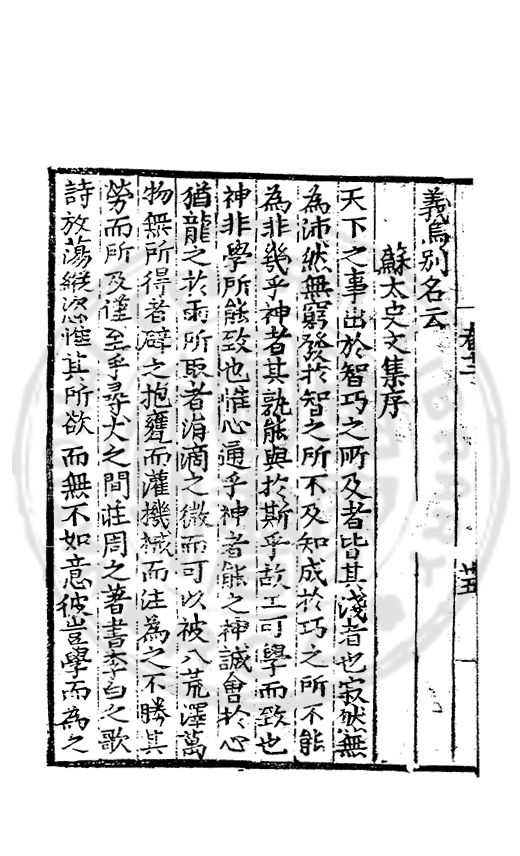 義烏別名云
蘇太史文集序
天下之事出於智巧之所及者皆其淺者也寂然無
為沛然無窮發於智之所不及知成於巧之所不能
為非幾乎神者其孰能與於斯乎故工可學而致也
神非學所能致也惟心通乎神者能之神誠會於心
猶龍之於雨所取者涓滴之微而可以被八荒澤萬
物無所得者譬之抱甕而灌機械而注為之不勝其
勞而所及僅至乎尋丈之間莊周之著書李白之歌
詩放蕩縱恣惟其所欲而無不如意彼豈學而為之